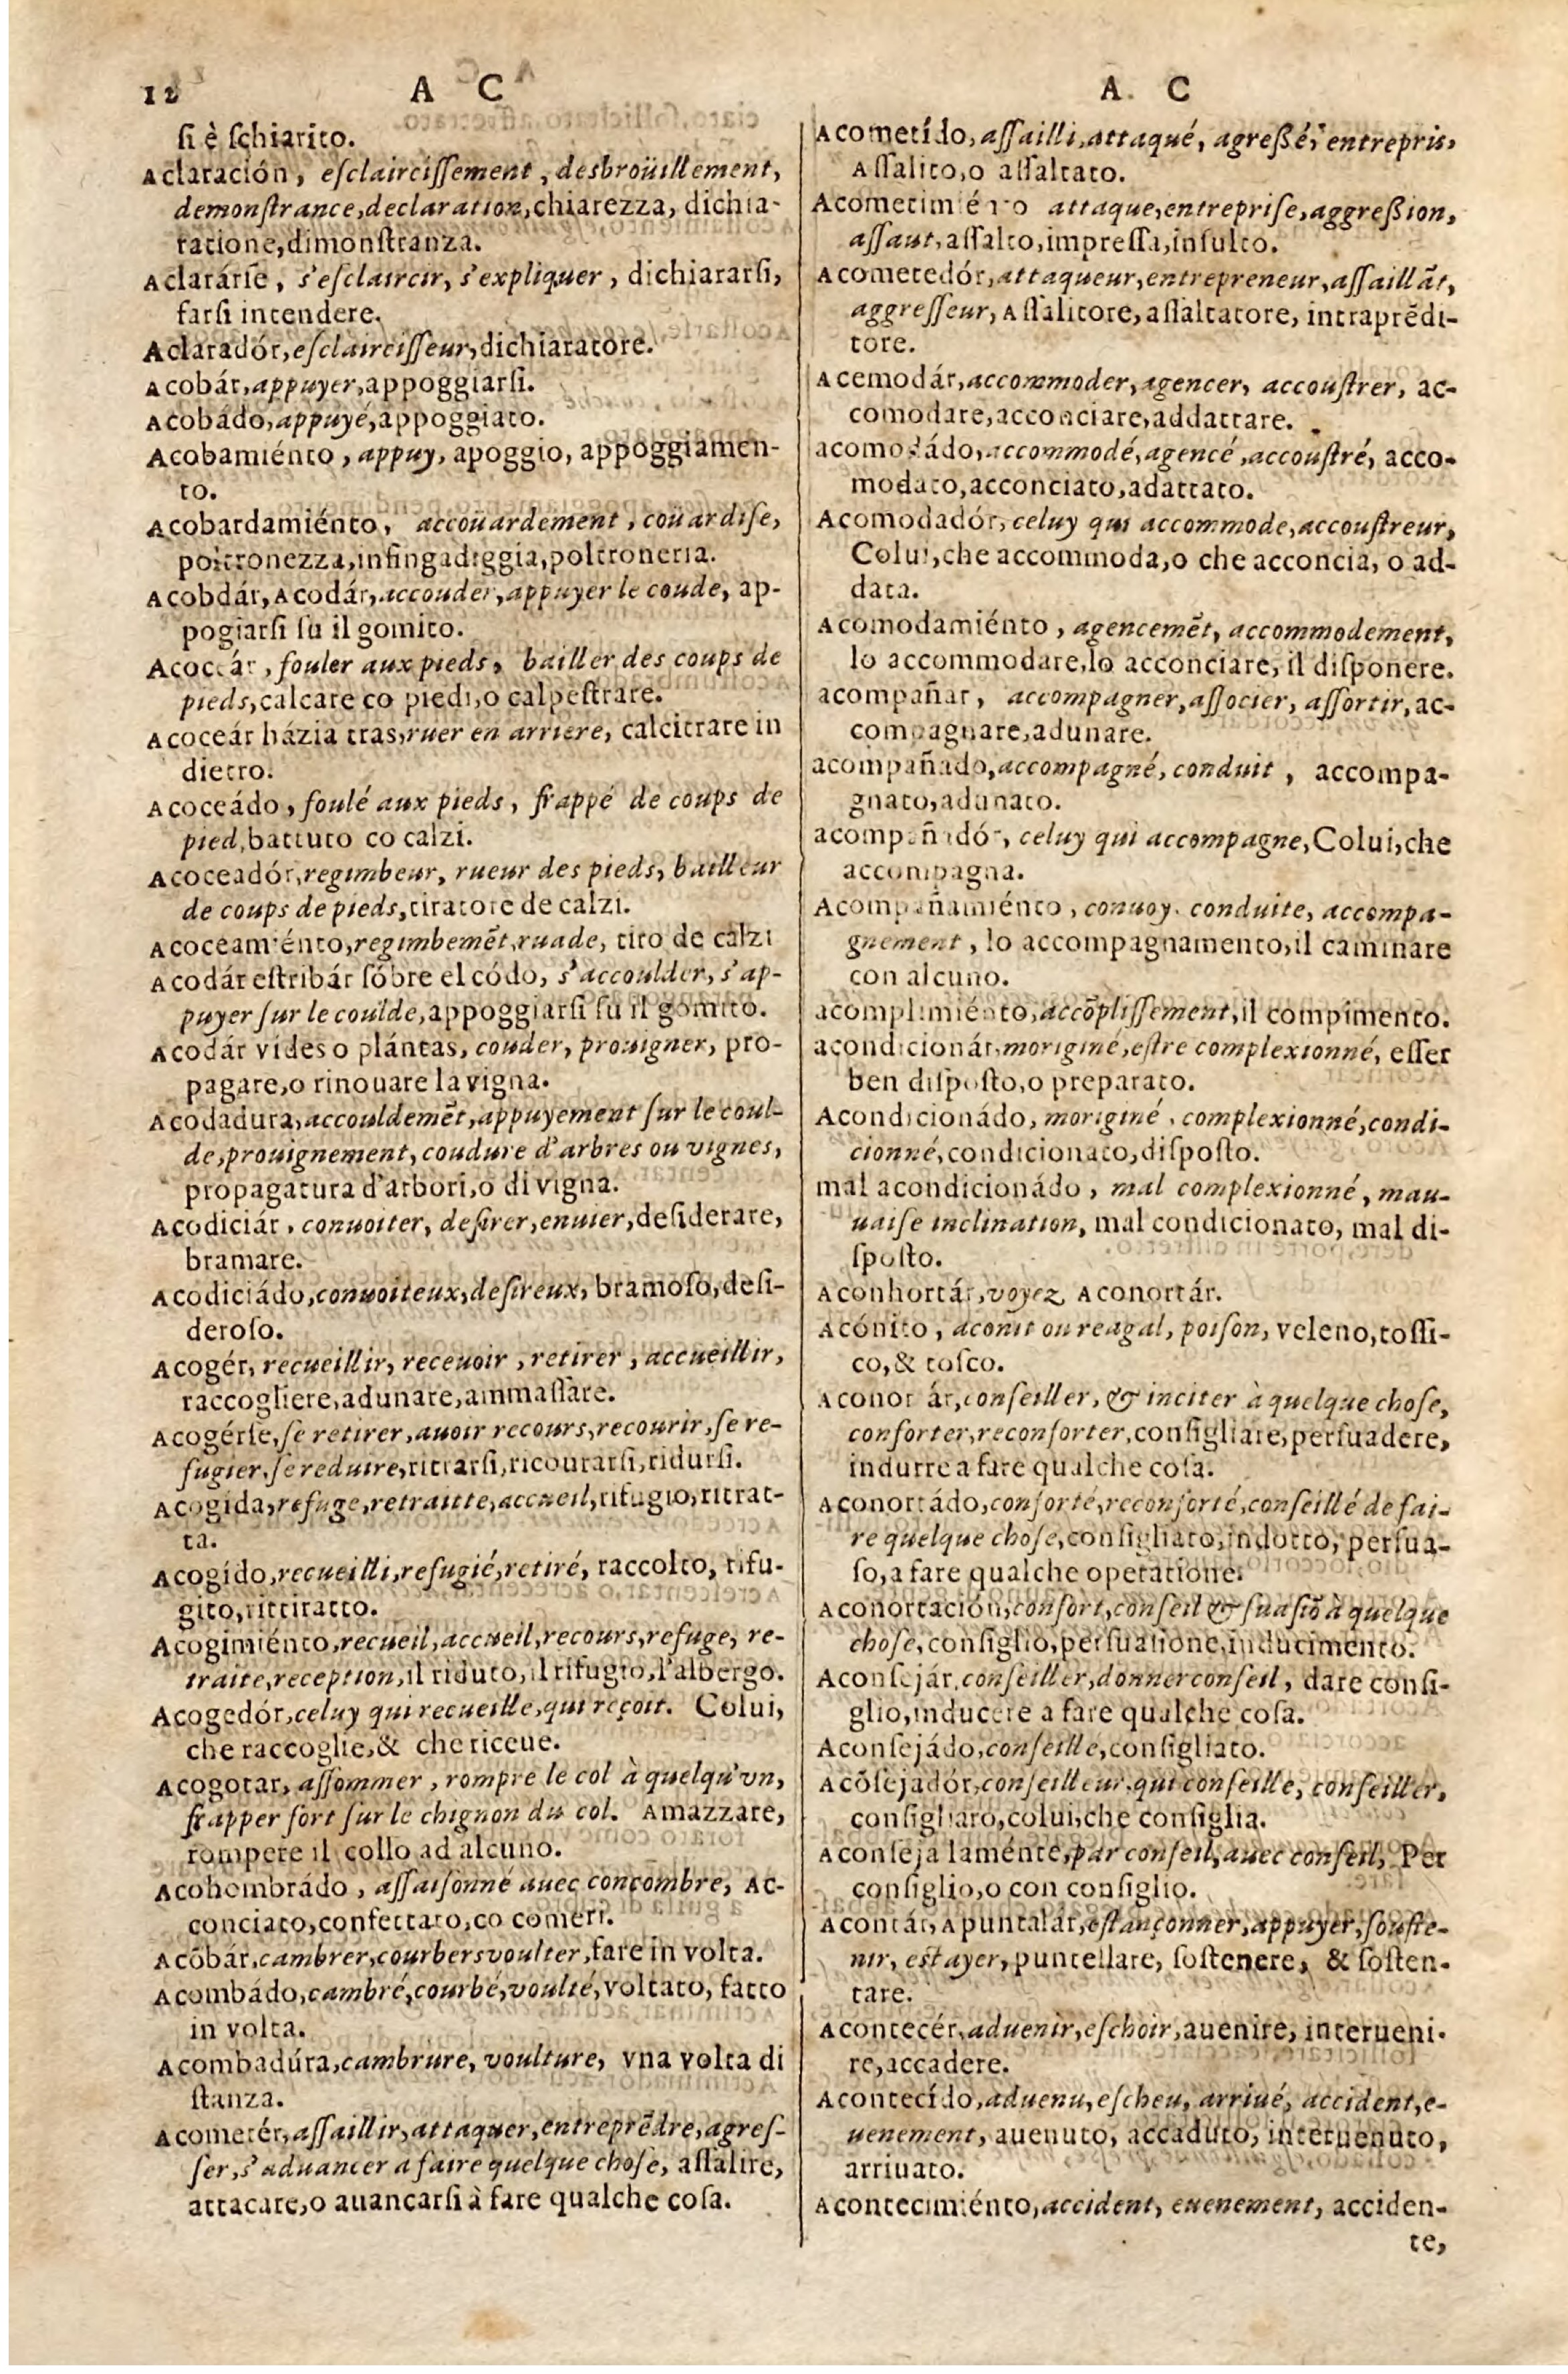 12 A C
ſi è ſchiarito.
Aclaración, eſclairciſſement, desbroüillement,
demonſtrance, declaration, chiarezza, dichia-
ratione, dimonſtranza.
Aclarárſe, s'eſclaircir, s'expliquer, dichiararſi,
farſi intendere.
Aclaradór, eſclairciſſeur, dichiaratore.
Acobár, appuyer, appoggiarſi.
Acobádo, appuyé, appoggiato.
Acobamiénto, appuy, apoggio, appoggiamen-
to.
Acobardamiénto, accoüardement, coüardiſe,
poltronezza, infingadiggia, poltroneria.
Acobdár, Acodár, accouder, appuyer le coude, ap-
pogiarſi ſu il gomito.
Acoceár, fouler aux pieds, bailler des coups de
pieds, calcare co piedi, o calpeſtrare.
Acoceár házia tras, ruer en arriere, calcitrare in
dietro.
Acoceádo, foulé aux pieds, frappé de coups de
pied, battuto co calzi.
Acoceadór, regimbeur, rueur des pieds, bailleur
de coups de pieds, tiratore de calzi.
Acoceamiénto, regimbemẽt, ruade, tiro de calzi
Acodár eſtribár ſóbre el códo, s'accoulder, s'ap-
puyer ſur le coulde, appoggiarſi ſu il gomito.
Acodár vides o plántas, couder, prouigner, pro-
pagare, o rinouare la vigna.
Acodadura, accouldemẽt, appuyement ſur le coul-
de, prouignement, coudure d'arbres ou vignes,
propagatura d'arbori, o di vigna.
Acodiciár, conuoiter, deſirer, enuier, deſiderare,
bramare.
Acodiciádo, conuoiteux, deſireux, bramoſo, deſi-
deroſo.
Acogér, recueillir, receuoir, retirer, accueillir,
raccogliere, adunare, ammaſſare.
Acogérſe, ſe retirer, auoir recours, recourir, ſe re-
fugier, ſe reduire, ritrarſi, ricourarſi, ridurſi.
Acogída, refuge, retraitte, accueil, rifugio, ritrat-
ta.
Acogído, recueilli, refugié, retiré, raccolto, rifu-
gito, rittiratto.
Acogimiénto, recueil, accueil, recours, refuge, re-
traite, reception, il riduto, il rifugio, l'albergo.
Acogedór, celuy qui recueille, qui reçoit. Colui,
che raccoglie, & che riceue.
Acogotar, aſſommer, rompre le col à quelqu'vn,
frapper fort ſur le chignon du col. Amazzare,
rompere il collo ad alcuno.
Acohombrádo, aſſaiſonné auec concombre, Ac-
conciato, confettato, co comeri.
Acõbár, cambrer, courber, voulter, fare in volta.
Acombádo, cambré, courbé, voulté, voltato, fatto
in volta.
Acombadúra, cambrure, voulture, vna volta di
ſtanza.
Acometér, aſſaillir, attaquer, entreprẽdre, agreſ-
ſer, s'aduancer a faire quelque choſe, aſſalire,
attacare, o auancarſi à fare qualche coſa.
A C
Acometído, aſſailli, attaqué, agreßé, entrepris,
Aſſalito, o aſſaltato.
Acometimiénto attaque, entrepriſe, aggreßion,
aſſaut, aſſalto, impreſſa, inſulto.
Acometedór, attaqueur, entrepreneur, aſſaillãt,
aggreſſeur, Aſſalitore, aſſaltatore, intraprẽdi-
tore.
Acemodár, accommoder, agencer, accouſtrer, ac-
comodare, acconciare, addattare.
acomodádo, accommodé, agencé, accouſtré, acco-
modato, acconciato, adattato.
Acomodadór, celuy qui accommode, accouſtreur,
Colui, che accommoda, o che acconcia, o ad-
data.
Acomodamiénto, agencemẽt, accommodement,
lo accommodare, lo acconciare, il diſponere.
acompañar, accompagner, aſſocier, aſſortir, ac-
compagnare, adunare.
acompañado, accompagné, conduit, accompa-
gnato, adunato.
acompañadór, celuy qui accompagne, Colui, che
accompagna.
Acompañamiénto, conuoy, conduite, accompa-
gnement, lo accompagnamento, il caminare
con alcuno.
acomplimiénto, accõpliſſement, il compimento.
acondicionár, moriginé, eſtre complexionné, eſſer
ben diſpoſto, o preparato.
Acondicionádo, moriginé, complexionné, condi-
cionné, condicionato, diſpoſto.
mal acondicionádo, mal complexionné, mau-
uaiſe inclination, mal condicionato, mal di-
ſpoſto.
Aconhortár, voyez Aconortár.
Acónito, aconit ou reagal, poiſon, veleno, toſſi-
co, & toſco.
Aconortár, conſeiller, & inciter à quelque choſe,
conforter, reconforter, conſigliare, perſuadere,
indurre a fare qualche coſa.
Aconortádo, conforté, reconforté, conſeillé de fai-
re quelque choſe, conſigliato, indotto, perſua-
ſo, a fare qualche operatione.
Aconortación, confort, conſeil & ſuaſiõ à quelque
choſe, conſiglio, perſuaſione, inducimento.
Aconſejár, conſeiller, donner conſeil, dare conſi-
glio, inducere a fare qualche coſa.
Aconſejádo, conſeille, conſigliato.
Acõſejadór, conſeilleur, qui conſeille, conſeiller,
conſigliaro, colui, che conſiglia.
Aconſejá laménte, par conſeil, auec conſeil, Per
conſiglio, o con conſiglio.
Acontár, Apuntalár, eſtançonner, appuyer, ſouſte-
nir, eſtayer, puntellare, ſoſtenere, & ſoſten-
tare.
Acontecér, aduenir, eſchoir, auenire, interueni-
re, accadere.
Acontecído, aduenu, eſcheu, arriué, accident, e-
uenement, auenuto, accaduto, interuenuto,
arriuato.
Acontecimiénto, accident, euenement, acciden-
te,